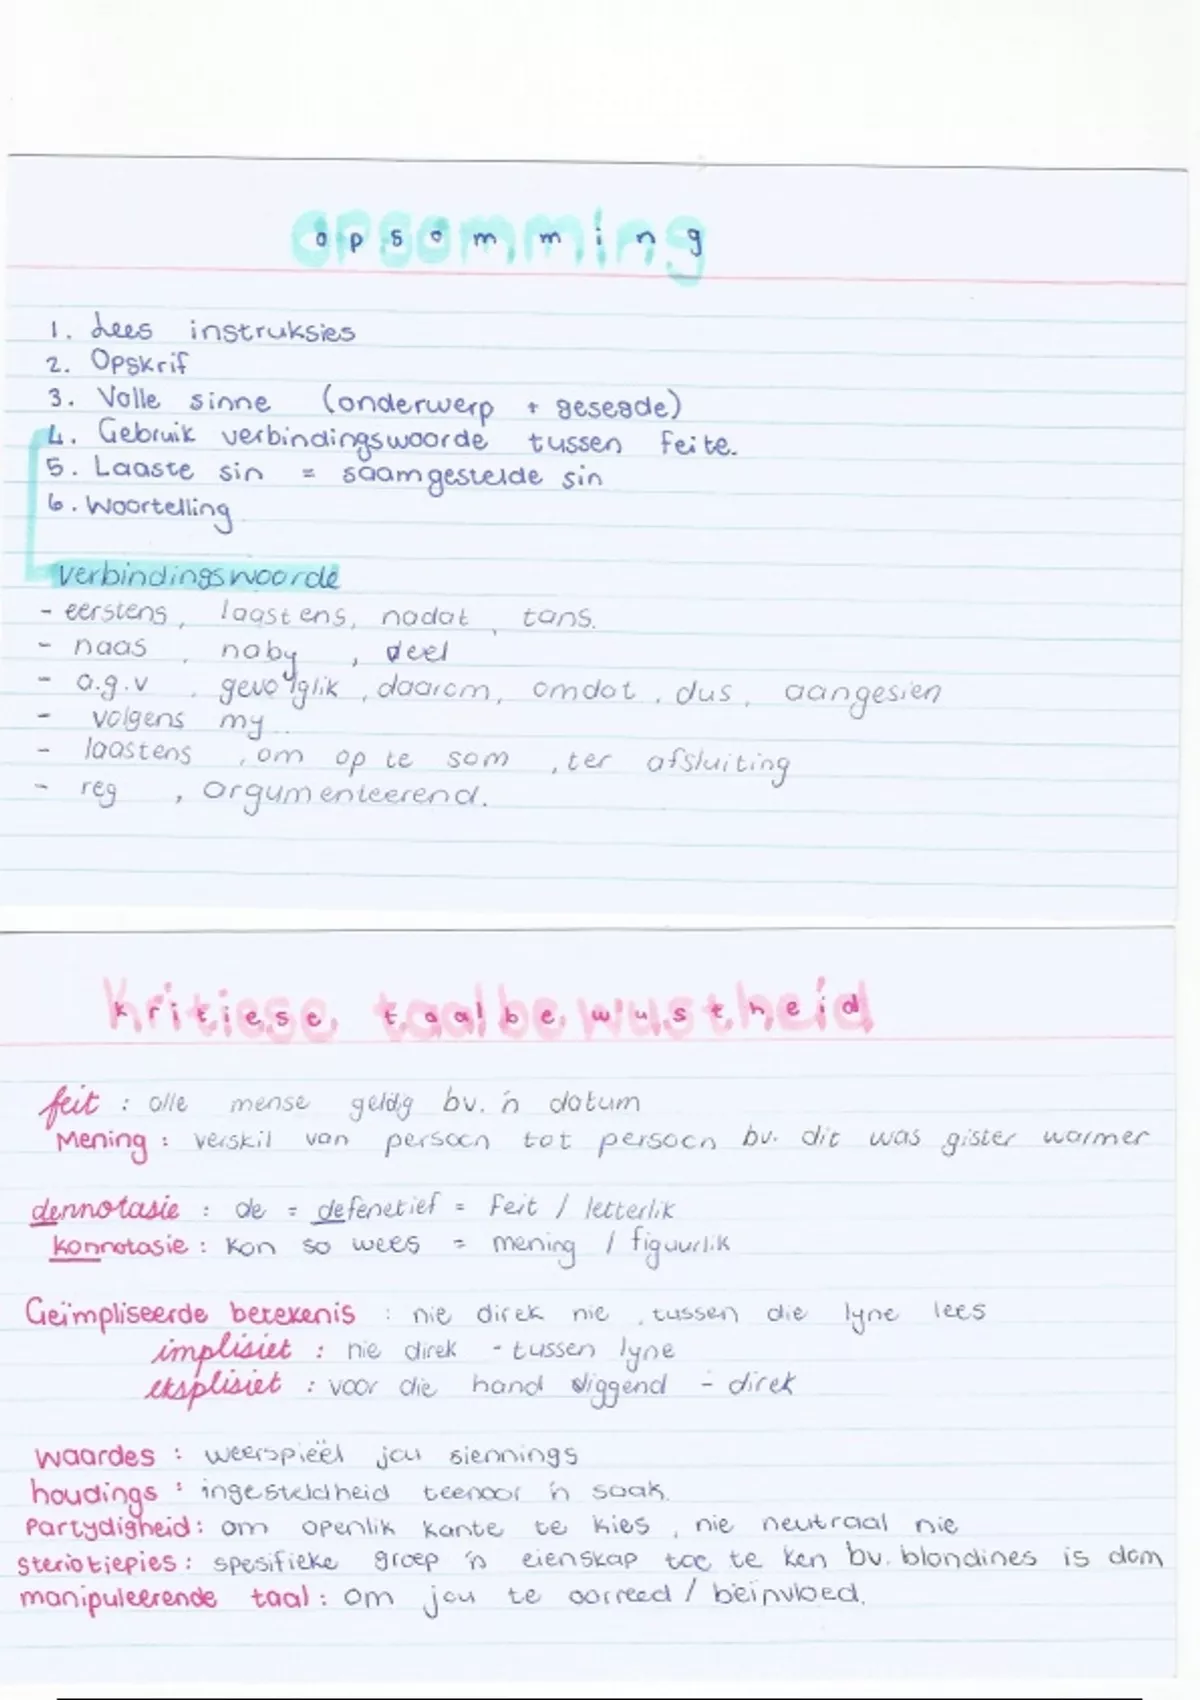 opsomming
1. Lees instruksies
2. Opskrif
3. Volle sinne (onderwerp + gesegde)
4. Gebruik verbindingswoorde tussen feite.
5. Laaste sin = saamgestelde sin
6. Woortelling
verbindingswoorde
- eerstens, laastens, nadat, tans.
- naas, naby, deel
- a.g.v, gevolglik, daarom, omdat, dus, aangesien
- volgens my..
- laastens, om op te som, ter afsluiting
- reg, argumenteerend.
kritiese taalbewustheid
feit : alle mense geldig bv. 'n datum
Mening : verskil van persoon tot persoon bv. dit was gister warmer
dennotasie : de = defenetief = feit / letterlik
konnotasie : kon so wees = mening / figuurlik
Geïmpliseerde betekenis : nie direk nie, tussen die lyne lees
implisiet : nie direk - tussen lyne
eksplisiet : voor die hand liggend - direk
waardes : weerspieël jou siennings
houdings : ingesteldheid teenoor 'n saak.
Partydigheid : om openlik kante te kies, nie neutraal nie
steriotiepies : spesifieke groep 'n eienskap toe te ken bv. blondines is dom
manipuleerende taal : om jou te oorreed / beïnvloed.